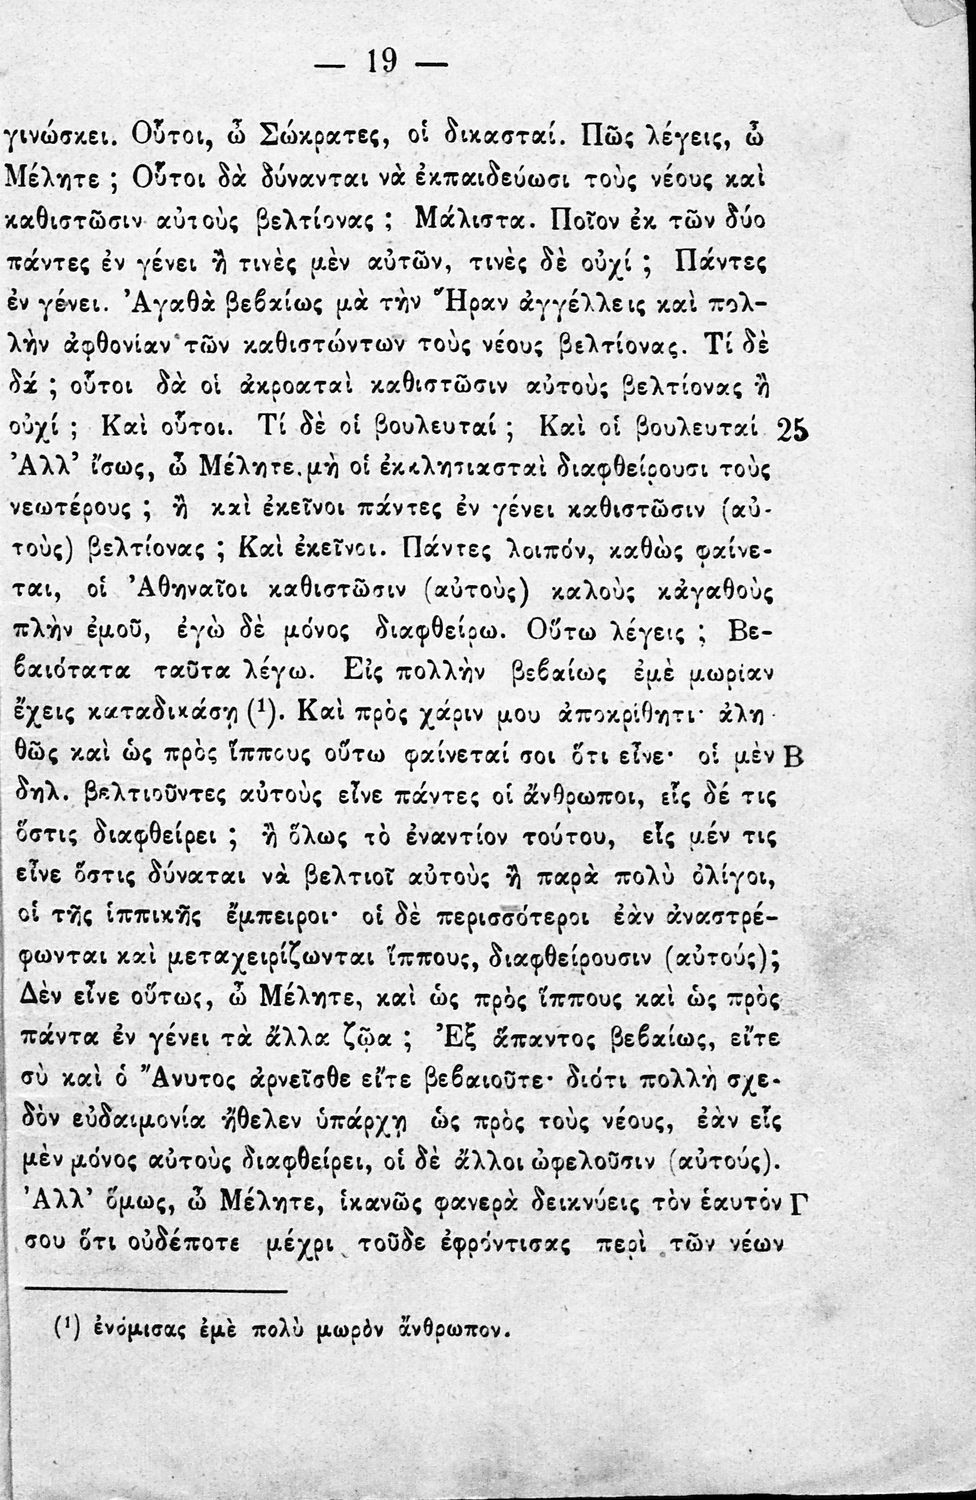 — 19 —
γινώσκει. Οὗτοι, ὦ Σώκρατες, οἱ δικασταί. Πῶς λέγεις, ὦ
Μέλητε ; Οὗτοι δὰ δύνανται νὰ ἐκπαιδεύωσι τοὺς νέους καὶ
καθιστῶσιν αὐτοὺς βελτίονας ; Μάλιστα. Ποῖον ἐκ τῶν δύο
πάντες ἐν γένει ἢ τινὲς μὲν αὐτῶν, τινὲς δὲ οὐχί ; Πάντες
ἐν γένει. Ἀγαθὰ βεβαίως μὰ τὴν Ἥραν ἀγγέλλεις καὶ πολ-
λὴν ἀφθονίαν τῶν καθιστώντων τοὺς νέους βελτίονας. Τί δὲ
δά ; οὗτοι δὰ οἱ ἀκροαταὶ καθιστῶσιν αὐτοὺς βελτίονας ἢ
οὐχί ; Καὶ οὗτοι. Τί δὲ οἱ βουλευταί ; Καὶ οἱ βουλευταί 25
Ἀλλ’ ἴσως, ὦ Μέλητε, μὴ οἱ ἐκκλησιασταὶ διαφθείρουσι τοὺς
νεωτέρους ; ἢ καὶ ἐκεῖνοι πάντες ἐν γένει καθιστῶσιν (αὐ-
τοὺς) βελτίονας ; Καὶ ἐκεῖνοι. Πάντες λοιπόν, καθὼς φαίνε-
ται, οἱ Ἀθηναῖοι καθιστῶσιν (αὐτοὺς) καλοὺς κἀγαθοὺς
πλὴν ἐμοῦ, ἐγὼ δὲ μόνος διαφθείρω. Οὕτω λέγεις ; Βε-
βαιότατα ταῦτα λέγω. Εἰς πολλὴν βεβαίως ἐμὲ μωρίαν
ἔχεις καταδικάσῃ (¹). Καὶ πρὸς χάριν μου ἀποκρίθητι· ἀλη
θῶς καὶ ὡς πρὸς ἵππους οὕτω φαίνεταί σοι ὅτι εἶνε· οἱ μὲν Β
δηλ. βελτιοῦντες αὐτοὺς εἶνε πάντες οἱ ἄνθρωποι, εἷς δέ τις
ὅστις διαφθείρει ; ἢ ὅλως τὸ ἐναντίον τούτου, εἷς μέν τις
εἶνε ὅστις δύναται νὰ βελτιοῖ αὐτοὺς ἢ παρὰ πολὺ ὀλίγοι,
οἱ τῆς ἱππικῆς ἔμπειροι· οἱ δὲ περισσότεροι ἐὰν ἀναστρέ-
φωνται καὶ μεταχειρίζωνται ἵππους, διαφθείρουσιν (αὐτούς);
Δὲν εἶνε οὕτως, ὦ Μέλητε, καὶ ὡς πρὸς ἵππους καὶ ὡς πρὸς
πάντα ἐν γένει τὰ ἄλλα ζῷα ; Ἐξ ἅπαντος βεβαίως, εἴτε
σὺ καὶ ὁ Ἄνυτος ἀρνεῖσθε εἴτε βεβαιοῦτε· διότι πολλὴ σχε-
δὸν εὐδαιμονία ἤθελεν ὑπάρχῃ ὡς πρὸς τοὺς νέους, ἐὰν εἷς
μὲν μόνος αὐτοὺς διαφθείρει, οἱ δὲ ἄλλοι ὠφελοῦσιν (αὐτούς).
Ἀλλ’ ὅμως, ὦ Μέλητε, ἱκανῶς φανερὰ δεικνύεις τὸν ἑαυτόν Γ
σου ὅτι οὐδέποτε μέχρι τοῦδε ἐφρόντισας περὶ τῶν νέων
(¹) ἐνόμισας ἐμὲ πολὺ μωρὸν ἄνθρωπον.